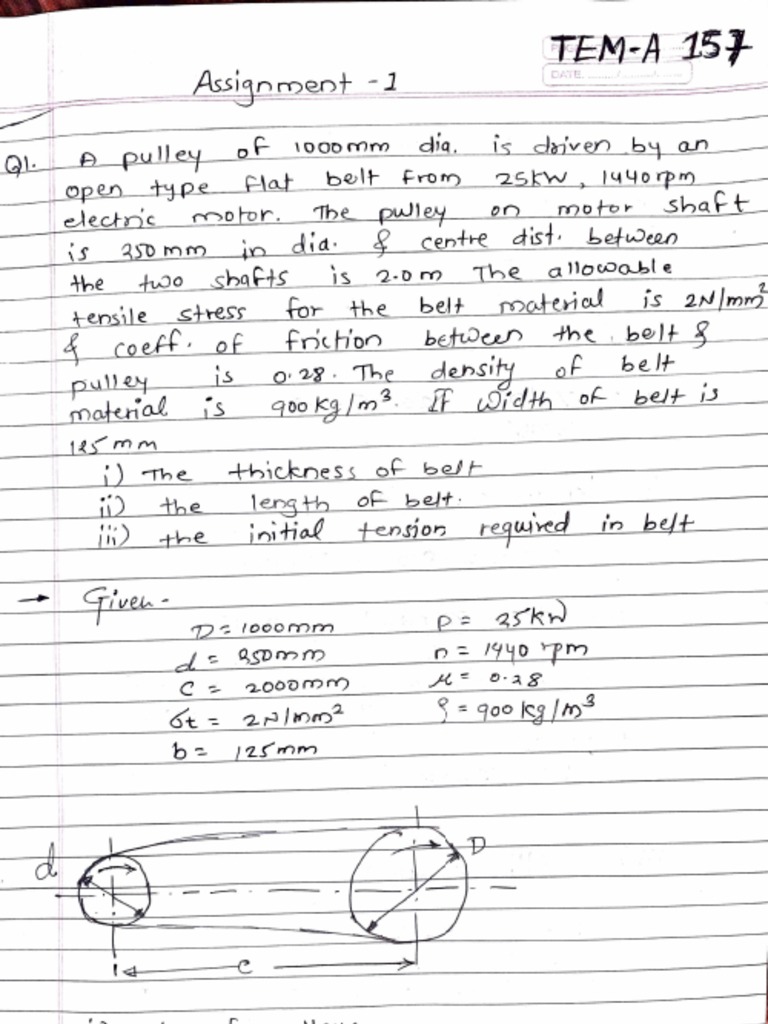 TEM-A 157
DATE
Assignment - 1
Q1. A pulley of 1000mm dia. is driven by an
open type flat belt from 25kW, 1440rpm
electric motor. The pulley on motor shaft
is 350mm in dia. & centre dist. between
the two shafts is 2.0m The allowable
tensile stress for the belt material is 2N/mm²
& coeff. of friction between the belt &
pulley is 0.28. The density of belt
material is 900kg/m³. If width of belt is
125mm
i) The thickness of belt
ii) the length of belt.
iii) the initial tension required in belt
→ Given -
D = 1000mm P = 25kW
d = 350mm n = 1440 rpm
C = 2000mm μ = 0.28
σt = 2N/mm² ρ = 900 kg/m³
b = 125mm
d D
C